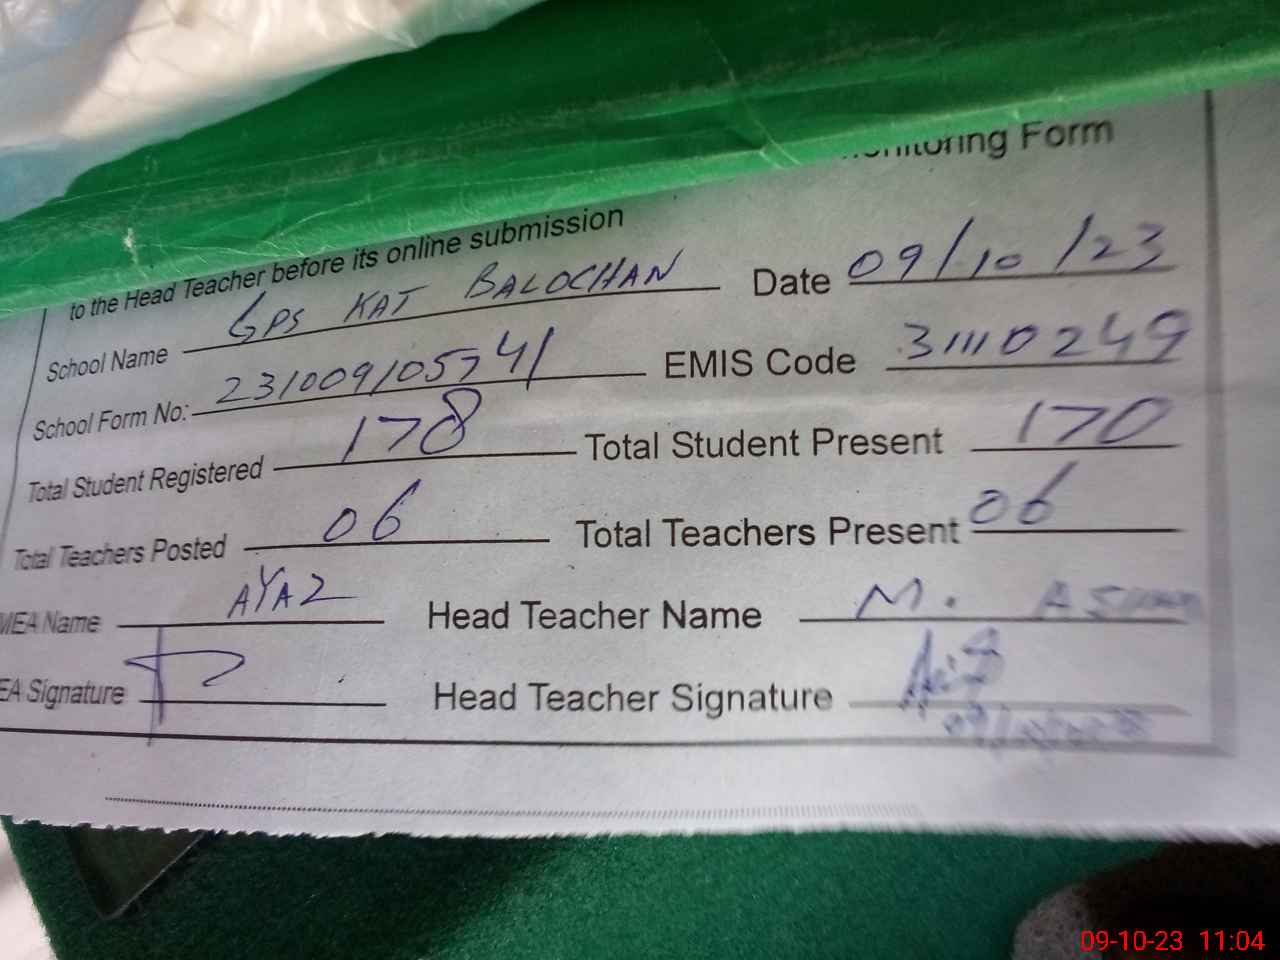 Form
to the Head Teacher before its online submission
School Name GPS KAT BALOCHAN Date 09/10/23
School Form No: 23100910574/ EMIS Code 31110249
Total Student Registered 178 Total Student Present 170
Total Teachers Posted 06 Total Teachers Present 06
MEA Name AYAZ Head Teacher Name M.
EA Signature Head Teacher Signature
09-10-23 11:04